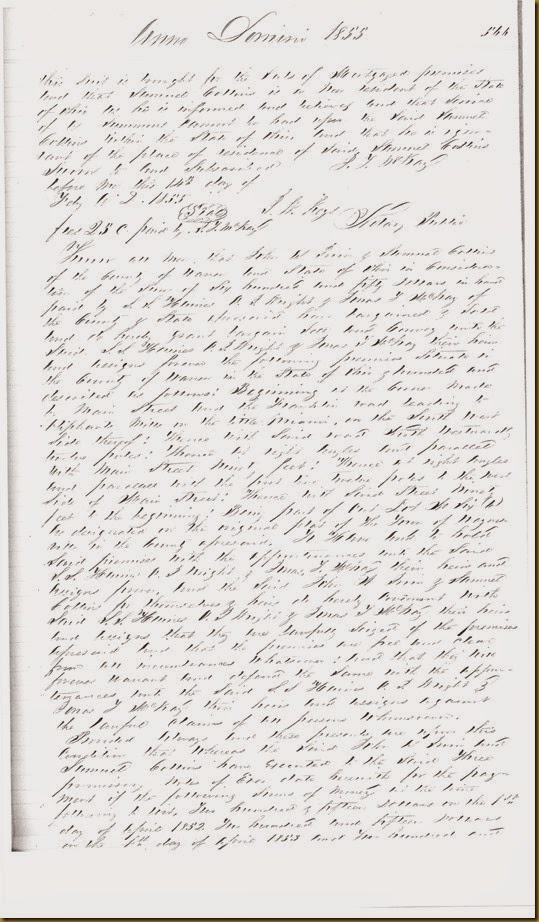 Anno Domini 1855 544
this suit is brought for the sale of Mortgaged premises
and that Samuel Collins is a non resident of the State
of Ohio as he is informed and believes and that service
of a summons cannot be had upon the said Samuel
Collins within the State of Ohio and that he is igno-
rant of the place of residence of said Samuel Collins
Sworn to and Subscribed J. T. McKay
before me this 14th day of
Feby A D. 1855
Seal Notary Public
fees 25 c paid by J. T. McKay
Know all Men, that John W and Samuel Collins
of the County of Warren and State of Ohio in Considera-
tion of the Sum of Six hundred and fifty dollars in hand
paid by S. S. Haines N. S. Wright & Jonas T McKay of
the County & State aforesaid have bargained & Sold
and do hereby grant bargain Sell and Convey unto the
Said S. S. Haines N. S. Wright & Jonas T McKay their heirs
and assigns forever the following premises Situate in
the County of Warren in the State of Ohio & bounded and
described as follows: Beginning at the Corner made
by Main Street and the Franklin road leading to
Mills on the Little Miami, on the South West
Side thereof: Thence with Said road South Westwardly
twelve poles: Thence at right angles and parallel
with Main Street ninety feet: Thence at right angles
and parallel with the first line twelve poles to the
Side of Main Street: Thence with Said Street ninety
feet to the beginning: Being part of Out Lot No Six (6)
as designated on the original plat of the Town of Waynes-
ville in the County aforesaid. To Have and to hold
Said premises with the appurtenances unto the Said
S. S. Haines N. S. Wright & Jonas T. McKay their heirs and
assigns forever, and the Said John W & Samuel
Collins for themselves & heirs do hereby covenant with
Said S. S. Haines N. S. Wright & Jonas T McKay their heirs
and assigns that they are lawfully Seized of the premises
aforesaid and that the premises are free and clear
from all incumbrances whatsoever: and that they will
forever warrant and defend the Same with the appur-
tenances unto the Said S. S. Haines N. S. Wright &
Jonas T McKay their heirs and assigns against
the lawful claims of all persons whomsoever.
Provided always and these presents are upon this
Condition that whereas the Said John W and
Samuel Collins have executed to the Said Three
promissory notes of Even date herewith for the pay-
ment of the following Sums of money at the time
following to wit, Two hundred & fifteen dollars on the 1st
day of April 1852. Two hundred and fifteen dollars
on the 1st day of April 1853 and Two hundred and